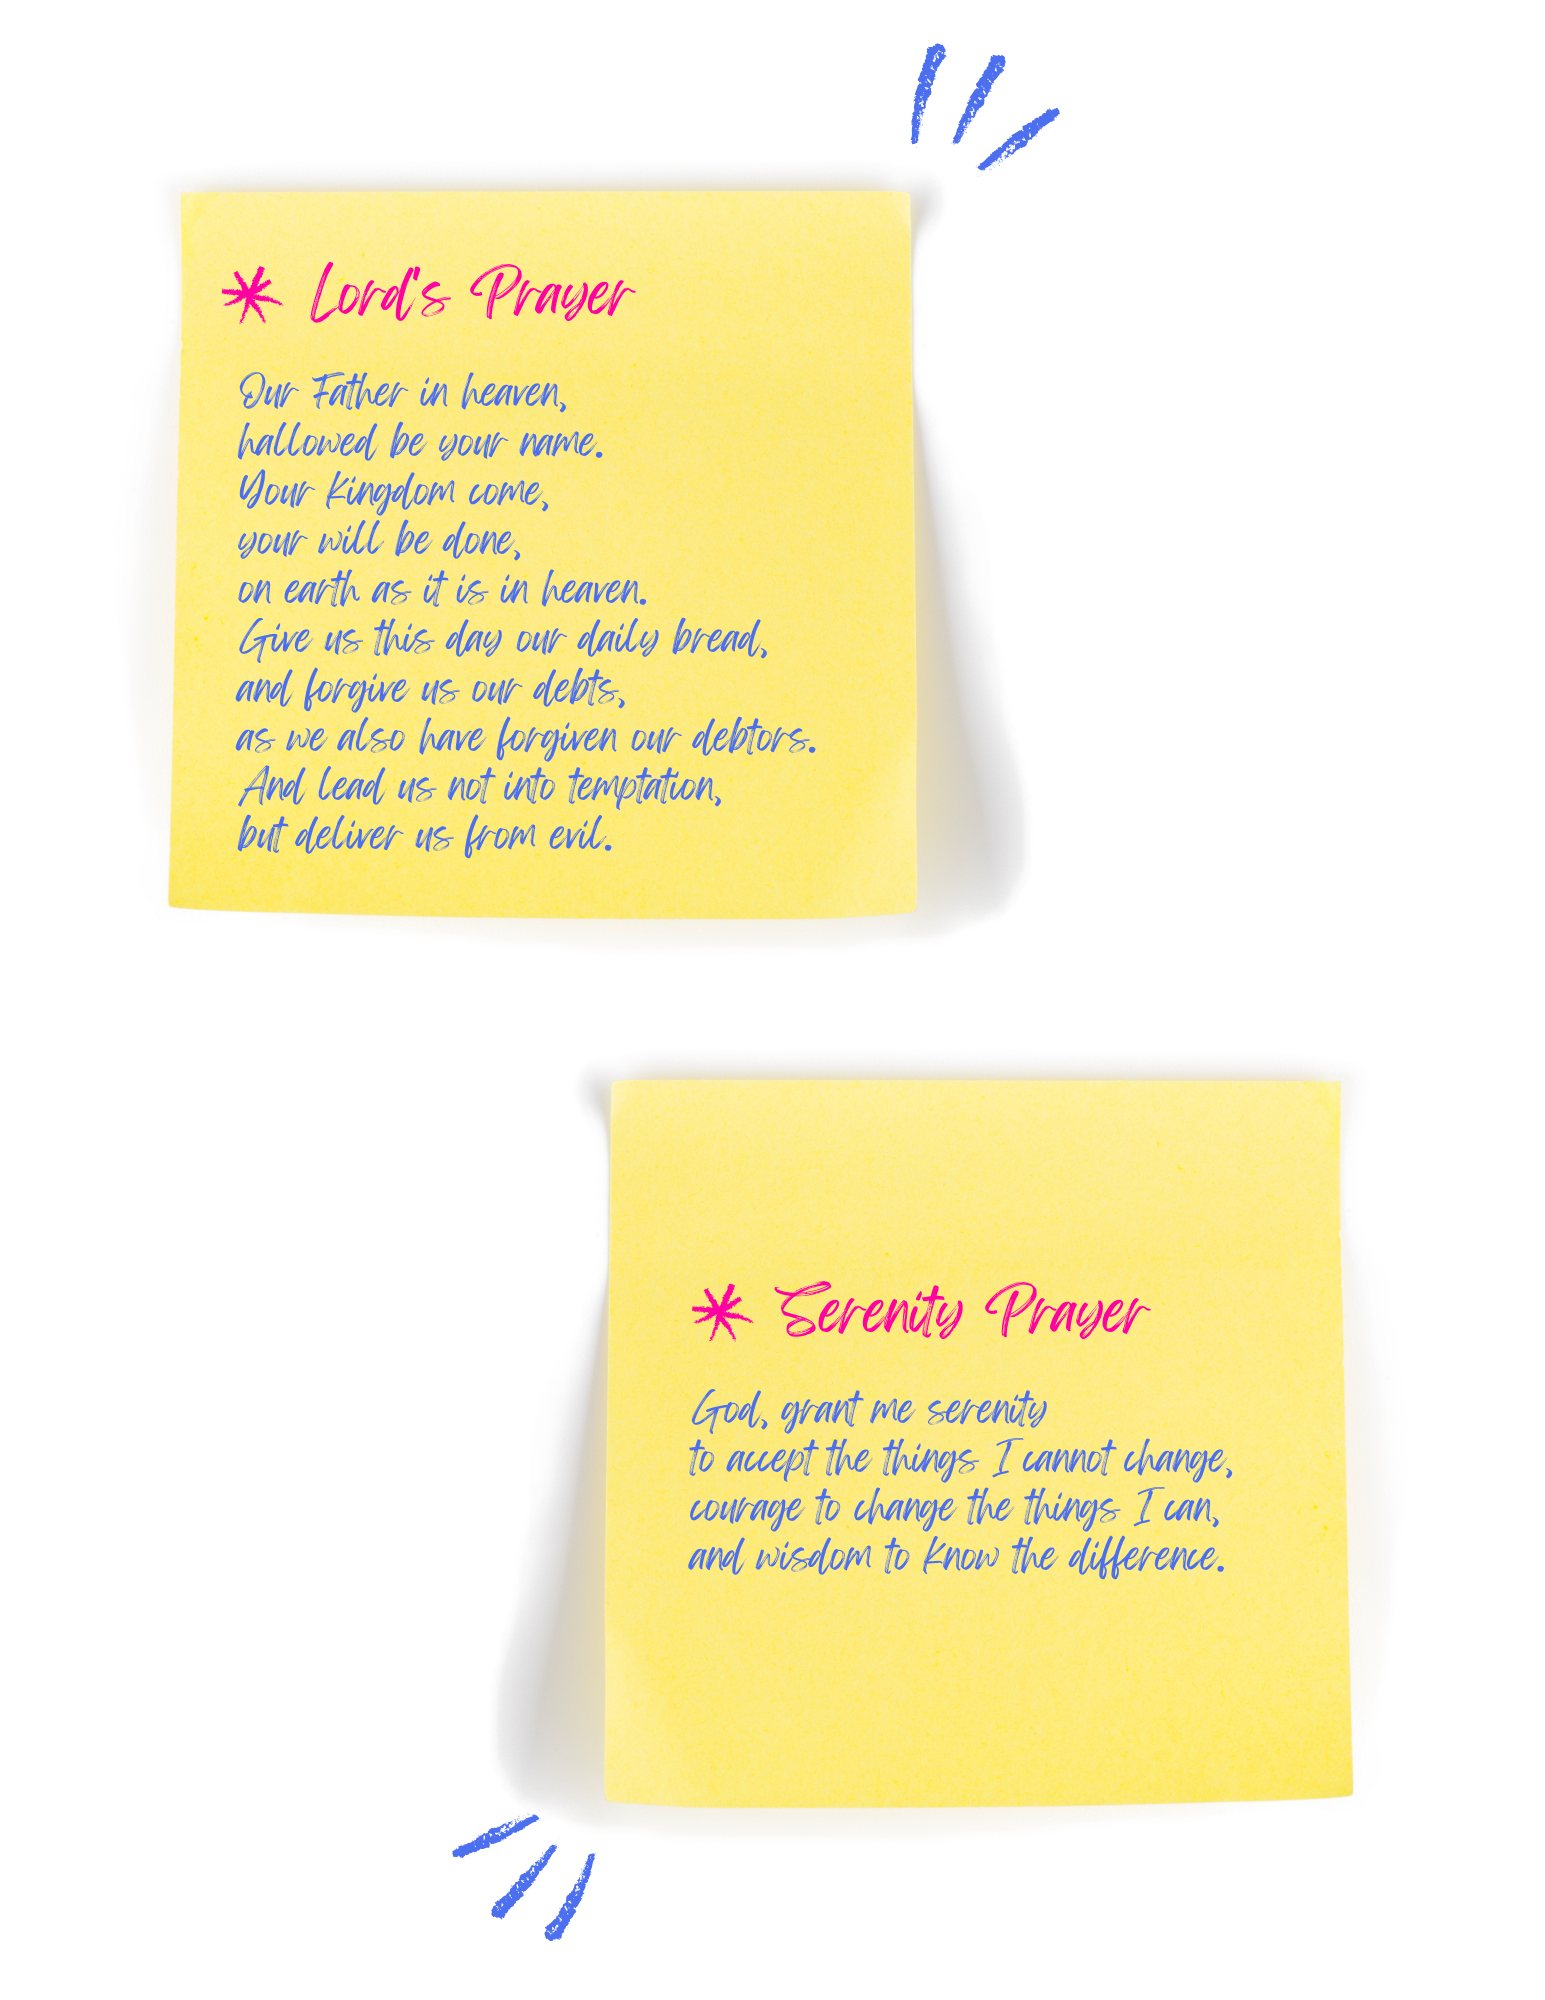 Lord's Prayer
Our Father in heaven,
hallowed be your name.
Your kingdom come,
your will be done,
on earth as it is in heaven.
Give us this day our daily bread,
and forgive us our debts,
as we also have forgiven our debtors.
And lead us not into temptation,
but deliver us from evil.
Serenity Prayer
God, grant me serenity
to accept the things I cannot change,
courage to change the things I can,
and wisdom to know the difference.